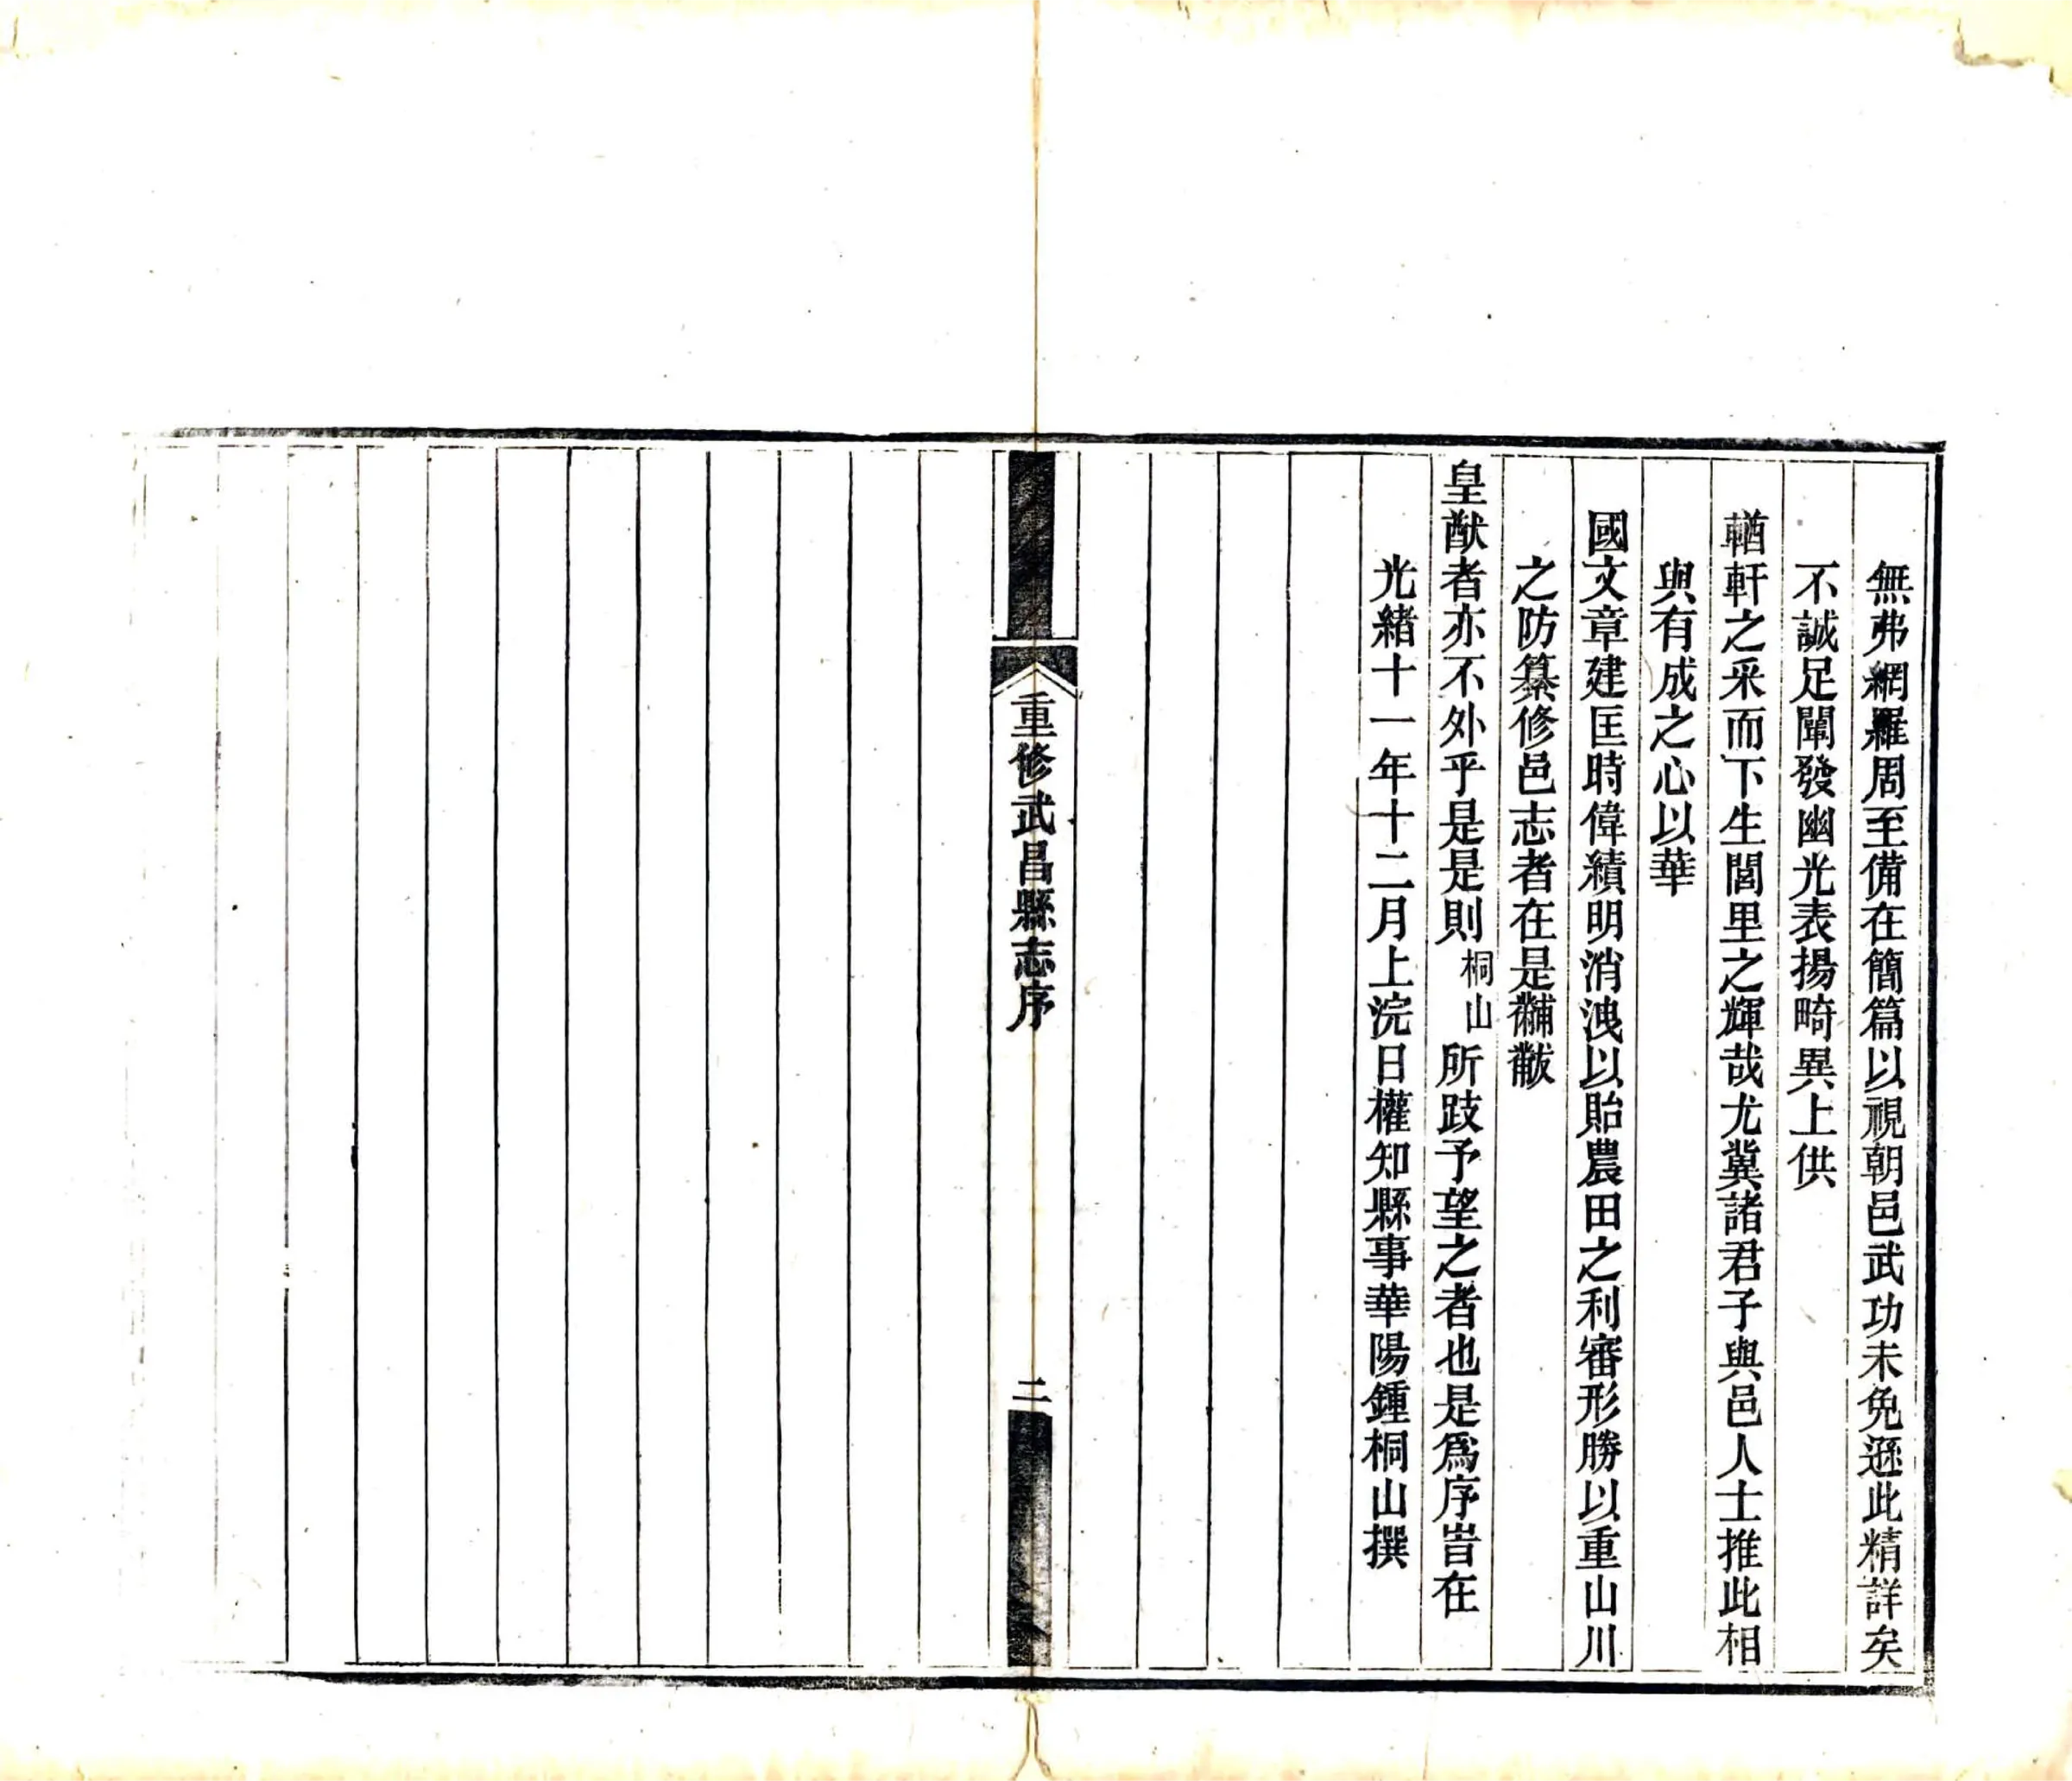 無弗網羅周至備在簡篇以視朝邑武功未免遜此精詳矣
不誠足闡發幽光表揚畸異上供
輶軒之采而下生閭里之輝哉尤冀諸君子與邑人士推此相
與有成之心以華
國文章建匡時偉績明消洩以貽農田之利審形勝以重山川
之防纂修邑志者在是黼黻
皇猷者亦不外乎是是則桐山所跂予望之者也是爲序旹在
光緒十一年十二月上浣日權知縣事華陽鍾桐山撰
重修武昌縣志序
二